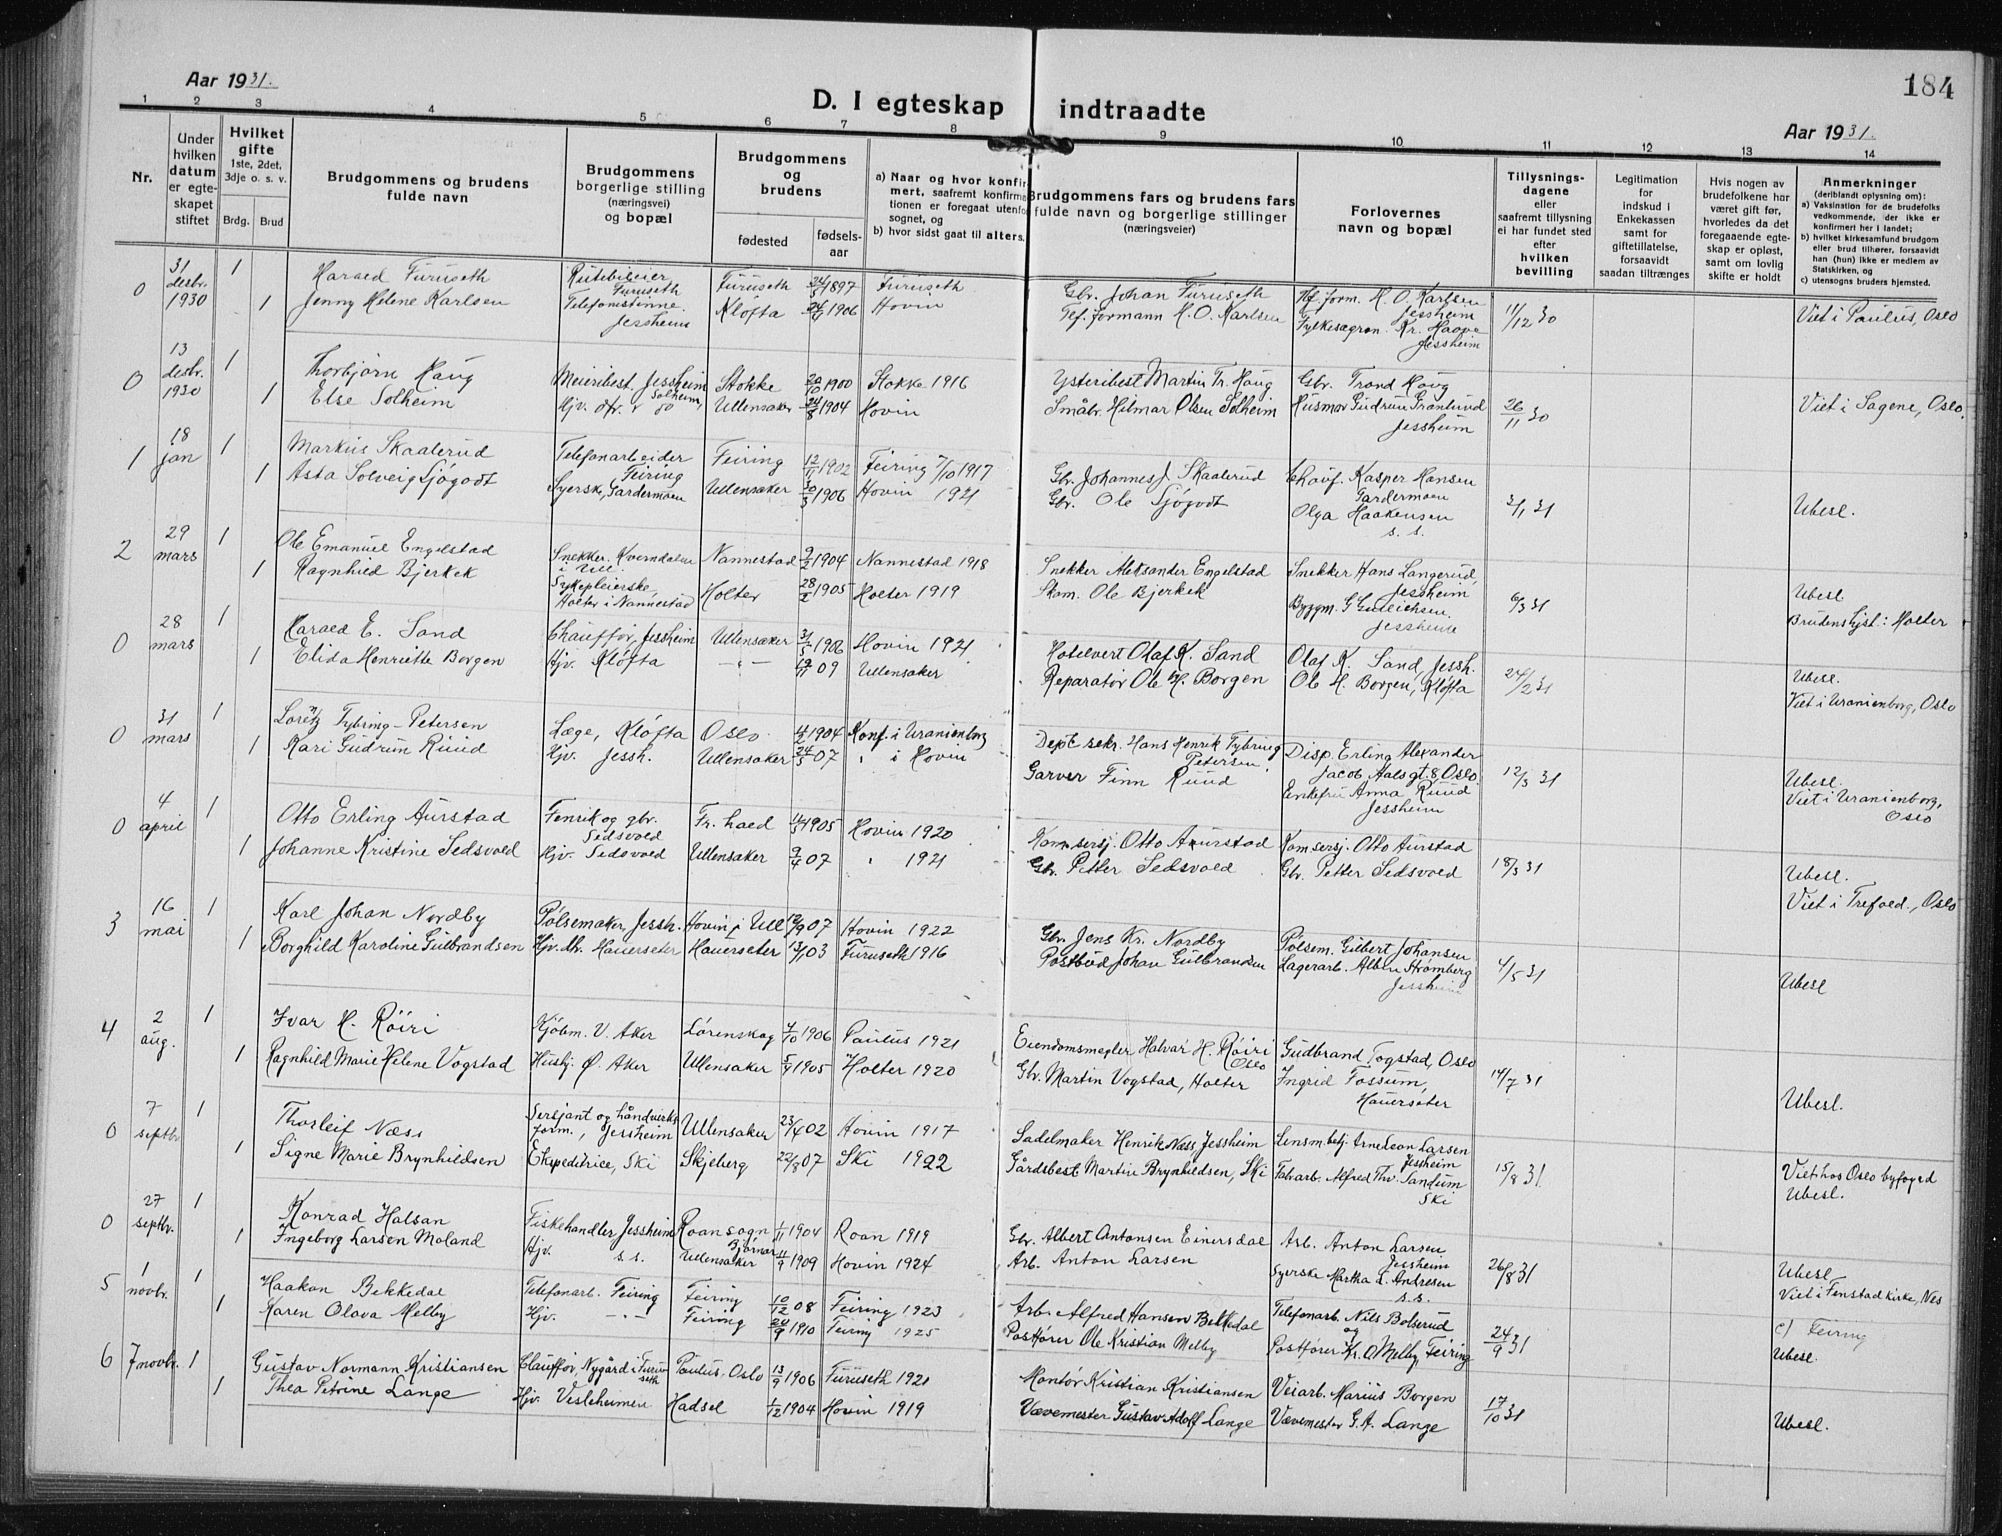 184
Aar 1931.
D. I egteskap indtraadte
Aar 1931.
1 2 3 4 5 6 7 8 9 10 11 12 13 14
Nr.
Under hvilken datum er egteskapet stiftet
Hvilket gifte 1ste, 2det, 3dje o. s. v.
Brdg. Brud
Brudgommens og brudens fulde navn
Brudgommens borgerlige stilling (næringsvei) og bopæl
Brudgommens og brudens
fødested fødselsaar
a) Naar og hvor konfirmert, saafremt konfirmationen er foregaat utenfor sognet, og
b) hvor sidst gaat til alters.
Brudgommens fars og brudens fars fulde navn og borgerlige stillinger (næringsveier)
Forlovernes navn og bopæl
Tillysningsdagene eller saafremt tillysning ei har fundet sted efter hvilken bevilling
Legitimation for indskud i Enkekassen samt for giftetillatelse, forsaavidt saadan tiltrænges
Hvis nogen av brudefolkene har været gift før, hvorledes da det foregaaende egteskap er opløst, samt om lovlig skifte er holdt
Anmerkninger (deriblandt oplysning om):
a) Vaksination for de brudefolks vedkommende, der ikke er konfirmert her i landet;
b) hvilket kirkesamfund brudgom eller brud tilhører, forsaavidt han (hun) ikke er medlem av Statskirken, og
c) utensogns bruders hjemsted.
0 31 desbr. 1930 1 Harald Furuseth Rutebileier Furuseth Furuseth 24/5 1897 Furuseth Gbr. Johan Furuseth Tlf. form. H. O. Karlsen Jessheim 11/12 30 Viet i Paulus, Oslo
1 Jenny Helene Karlsen Telefonistinne Jessheim Kløfta 1906 Hovin Tlf. formann H. O. Karlsen Fylkesagron. Kr. Haave Jessheim
0 13 desbr. 1930 1 Thorbjørn Haug Meieribest. Jessheim Stokke 20/10 1900 Stokke 1916 Ysteribest Martin Tr. Haug Gbr. Trond Haug 26/11 30 Viet i Sagene, Oslo.
1 Else Solheim Hjv. Solheim, Ullensaker 24/8 1904 Hovin Småbr. Hilmar Olsen Solheim Husmor Gudrun Granlund Jessheim
1 18 jan 1 Markus Skaalerud Telefonarbeider Feiring Feiring 12/11 1902 Feiring 7/10 1917 Gbr. Johannes J. Skaalerud Chauf. Kasper Hansen Gardermoen 2/1 31 Ubesl.
1 Asta Solveig Sjøgodt Syersk, Gardermoen Ullensaker 30/3 1906 Hovin 1921 Gbr. Ole Sjøgodt Olga Haakensen s. s.
2 29 mars 1 Ole Emanuel Engelstad Snekker. Kverndalen i Ull. Nannestad 9/2 1904 Nannestad 1918 Snekker Aleksander Engelstad Snekker Hans Langerud, Jessheim 6/3 31 Ubesl
1 Ragnhild Bjerkek Sykepleierske, Holter i Nannestad Holter 28/2 1905 Holter 1919 Skom. Ole Bjerkek Byggm. G Gullichsen Jessheim Brudens hjst: Holter
0 28 mars 1 Harald E. Sand Chauffør, Jessheim Ullensaker 31/5 1906 Hovin 1921 Hotelvert Olaf K. Sand Olaf K. Sand, Jessh. 24/2 31 Ubesl.
1 Elida Henriette Borgen Hjv. Kløfta - " - 09 Ullensaker Reparatør Ole H. Borgen Ole H. Borgen, Kløfta Viet i Uranienborg, Oslo
0 31 mars 1 Loretz Tybring-Petersen Læge, Kløfta Oslo 4/2 1904 Konf. i Uranienborg Dept. sekr. Hans Henrik Tybring Petersen. Disp. Erling Alexander Jacob Aalsgt. 8 Oslo 12/3 31 Ubesl
1 Kari Gudrun Ruud Hjv. Jessh. Ullensaker 24/5 07 " i Hovin Garver Finn Ruud Enkefru Anna Ruud Jessheim Viet i Uranienborg, Oslo
0 4 april 1 Otto Erling Aurstad Fenrik og gbr. Sedsvold Fr. hald 1905 Hovin 1920 Komp.sersj. Otto Aurstad Komsersj. Otto Aurstad 18/3 31 Ubesl.
1 Johanne Kristine Sedsvold Hjv. Sedsvold Ullensaker 9/4 07 " 1921 Gbr. Petter Sedsvold Gbr. Petter Sedsvold Viet i Trefold., Oslo
3 16 mai 1 Karl Johan Nordby Pølsemaker, Jessh. Hovin i Ull 12/9 07 Hovin 1922 Gbr. Jens Kr. Nordby Pølsem. Gilbert Johansen 4/5 31 Ubesl
1 Borghild Karoline Gulbrandsen Hjv. dh. Hauerseter Hauerseter 13/1 03 Furuseth 1916 Postbud Johan Gulbrandsen Lagerarb. Albin Strømberg Jessheim
4 2 aug. 1 Ivar H. Røiri Kjøbm. V. Aker Lørenskog 7/10 1906 Paulus 1921 Eiendomsmegler Halvar H. Røiri Oslo Gudbrand Togstad, Oslo 14/7 31 Ubesl.
1 Ragnhild Marie Helene Vogstad Husbj. Ø. Aker Ullensaker 5/9 1905 Holter 1920 Gbr. Martin Vogstad, Holter Ingrid Fossum, Hauerseter
0 7 septbr. 1 Thorleif Næss Sersjant og håndverksform., Jessheim Ullensaker 23/4 02 Hovin 1917 Sadelmaker Henrik Næss, Jessheim Lensm. betj. Arne Leon Larsen Jessheim 15/8 31 Viet hos Oslo byfoged
1 Signe Marie Brynhildsen Ekspeditrice, Ski Skjeberg 22/8 07 Ski 1922 Gårdsbest Martin Brynhildsen, Ski Fabarb. Alfred Thv. Sandum Ski Ubesl.
0 27 septbr. 1 Konrad Halsan Fiskehandler Jessheim Roan sogn Bjørnør 1/11 1904 Roan 1919 Gbr. Albert Antonsen Einersdal Arb. Anton Larsen Jessheim 26/8 31 Ubesl.
1 Ingeborg Larsen Moland Hjv. s. s. Ullensaker 11/9 1909 Hovin 1924 Arb. Anton Larsen Syerske Martha L. Andresen s. s. Viet i Fenstad kirke, Nes
5 1 novbr. 1 Haakon Bekkedal Telefonarb. Feiring Feiring 10/12 08 Feiring 1923 Arb. Alfred Hansen Bekkedal Telefonarb. Nils Bolserud og 24/9 31 c) Feiring
1 Karen Olava Melby Hjv. - " - Feiring 20/9 1910 Feiring 1925 Postfører Ole Kristian Melby Postfører Kr. O. Melby, Feiring Ubesl.
6 7 novbr. 1 Gustav Normann Kristiansen Chauffør, Nygård i Furuseth Paulus, Oslo 13/9 1906 Furuseth 1921 Montør Kristian Kristiansen Veiarb. Marius Borgen 17/10 31 Ubesl.
1 Thea Petrine Lange Hjv. Vesleheimen Hadsel 1/12 1904 Hovin 1919 Vævemester Gustav Adolf Lange Vævemester G. A. Lange